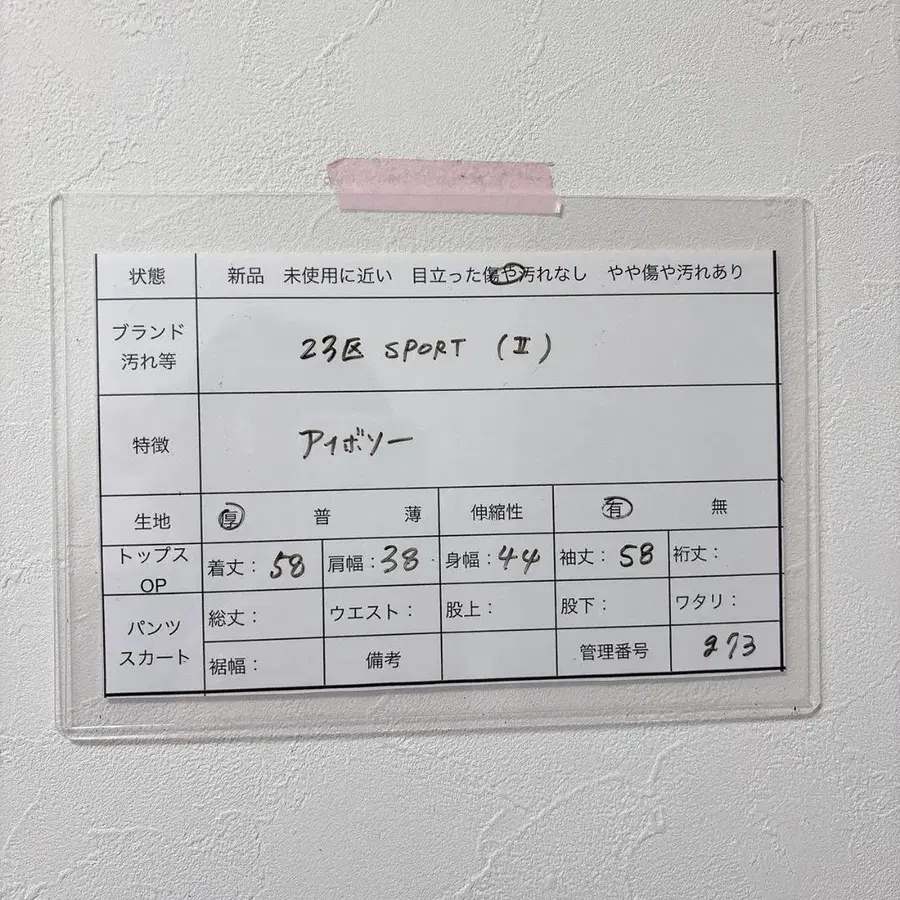 状態 新品 未使用に近い 目立った傷や汚れなし やや傷や汚れあり
ブランド
汚れ等
23区 SPORT (Ⅱ)
特徴 アイボリー
生地 厚 普 薄 伸縮性 有 無
トップス
OP
着丈: 58 肩幅:38 身幅:44 袖丈: 58 裄丈:
パンツ
スカート
総丈: ウエスト: 股上: 股下: ワタリ:
裾幅: 備考 管理番号 273